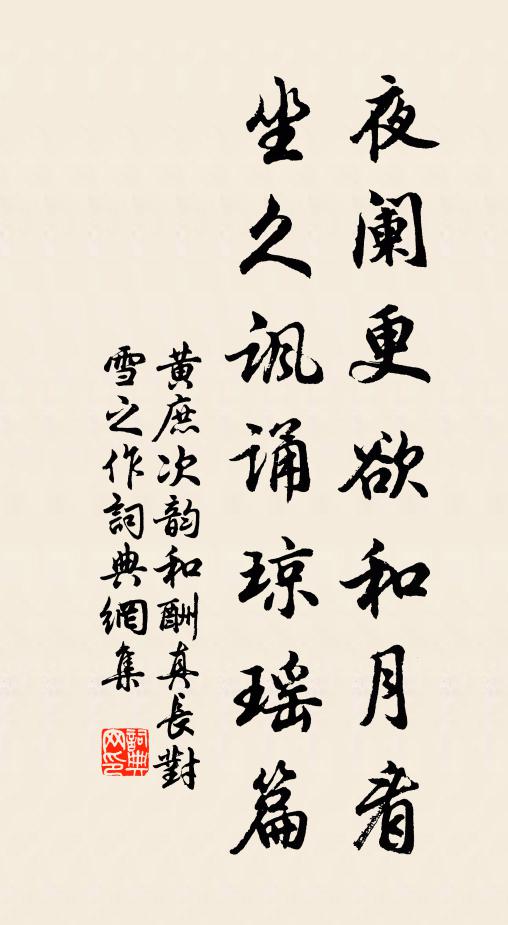 夜阑更欲和月看
坐久讽诵琼瑶篇
黄庶次韵和酬真長對
雪之作詞典網集
詞典网印